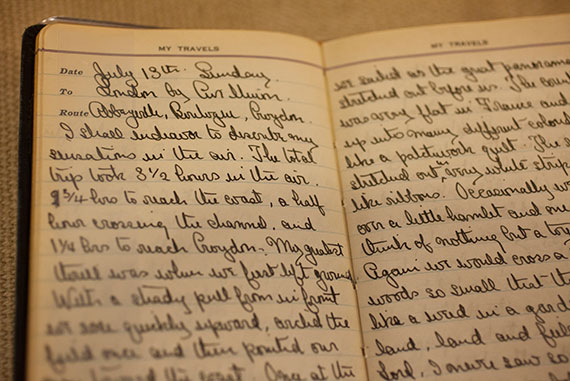 MY TRAVELS
Date July 13th. Sunday
To London by Air Union.
Route Abbeyville, Boulogne, Croydon.
I shall endeavor to describe my
sensations in the air. The total
trip took 3 1/2 hours in the air.
1 3/4 hrs to reach the coast, a half
hour crossing the channel, and
1 1/4 hrs to reach Croydon. My greatest
thrill was when we first left ground
With a steady pull from in front
we rose quickly upward, circled the
field once and then pointed our
toward the coast. Once at the
MY TRAVELS
we sailed as the great panorama
stretched out before us. The
was very flat in France and
up into many different colored
like a patchwork quilt. The
stretched out in very white
like ribbons. Occasionally
over a little hamlet and one
think of nothing but a
Again we would cross a
woods so small that
like a weed in a
land, land and
Lord, I never saw so